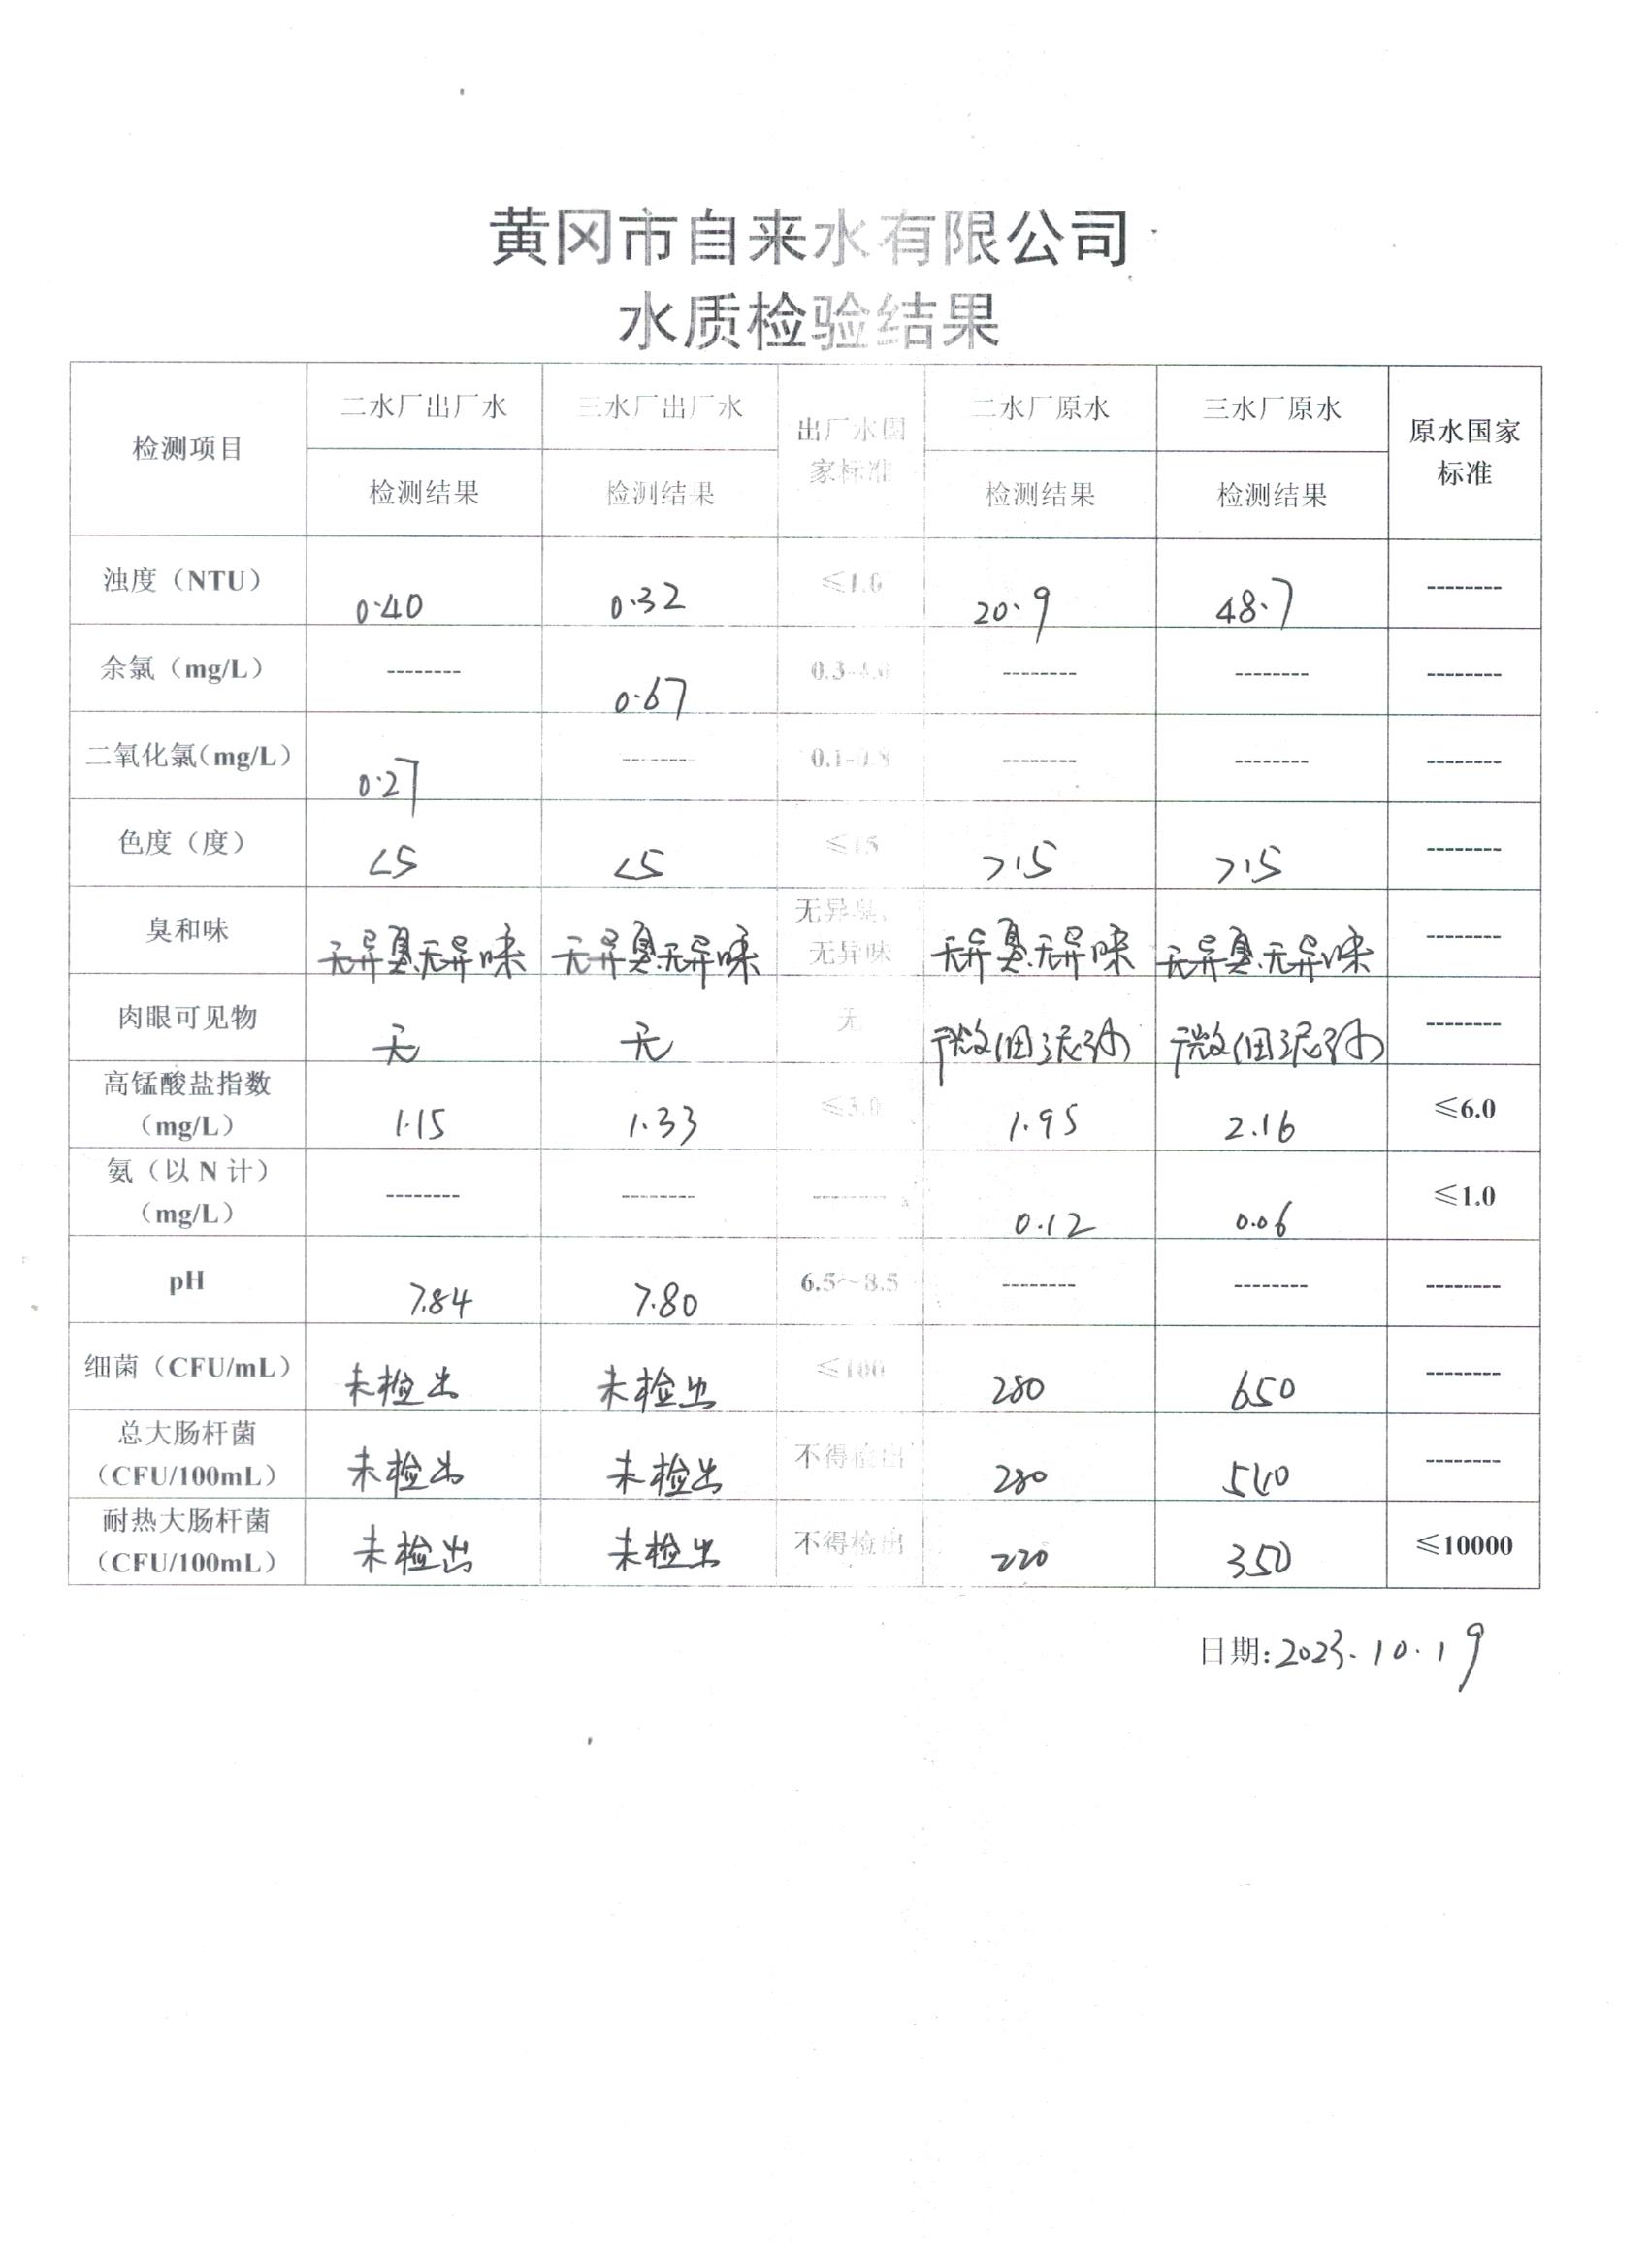 黄冈市自来水有限公司
水质检验结果
检测项目 二水厂出厂水 三水厂出厂水 出厂水国家标准 二水厂原水 三水厂原水 原水国家标准
检测结果 检测结果 检测结果 检测结果
浊度（NTU） 0.40 0.32 ≤1.0 20.9 48.7 --------
余氯（mg/L） -------- 0.67 0.3-4.0 -------- -------- --------
二氧化氯（mg/L） 0.27 -------- 0.1-0.8 -------- -------- --------
色度（度） <5 <5 ≤15 >15 >15 --------
臭和味 无异臭.无异味 无异臭.无异味 无异臭,无异味 无异臭.无异味 无异臭.无异味 --------
肉眼可见物 无 无 无 微细泥沙 微细泥沙 --------
高锰酸盐指数（mg/L） 1.15 1.33 ≤3.0 1.95 2.16 ≤6.0
氨（以 N 计）（mg/L） -------- -------- -------- 0.12 0.06 ≤1.0
pH 7.84 7.80 6.5～8.5 -------- -------- --------
细菌（CFU/mL） 未检出 未检出 ≤100 280 650 --------
总大肠杆菌（CFU/100mL） 未检出 未检出 不得检出 280 540 --------
耐热大肠杆菌（CFU/100mL） 未检出 未检出 不得检出 220 350 ≤10000
日期:2023.10.19